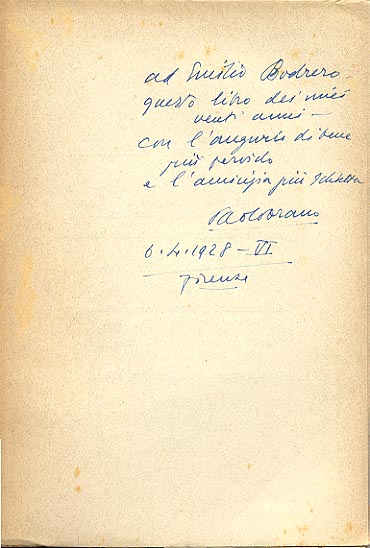 ad Emilio Bodrero
questo libro dei miei
venti anni —
con l'augurio di bene
più fervido
e l'amicizia più schietta
Paolo Orano
6.4.1928 - VI
Firenze